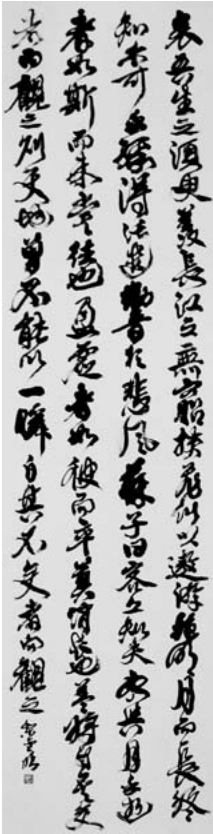 哀吾生之須臾羨長江之無窮挾飛仙以遨游抱明月而長終
知不可乎驟得託遺響於悲風蘇子曰客亦知夫水與月乎逝
者如斯而未嘗往也盈虛者如彼而卒莫消長也蓋將自其變
者而觀之則天地曾不能以一瞬自其不變者而觀之